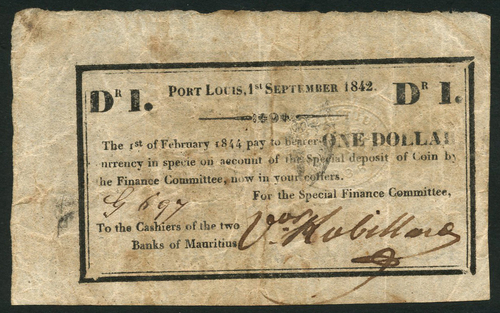 Dʳ 1. Port Louis, 1ˢᵗ September 1842. Dʳ 1.
The 1st of February 1844 pay to bearer ONE DOLLAR
currency in specie on account of the Special deposit of Coin by
the Finance Committee, now in your coffers.
For the Special Finance Committee,
G 697
To the Cashiers of the two
Banks of Mauritius
Vor Robillard